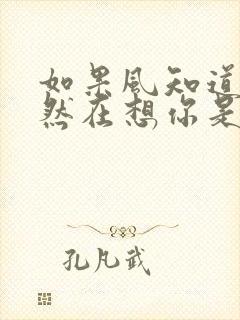 如果风知道
然在想你是
孔凡武